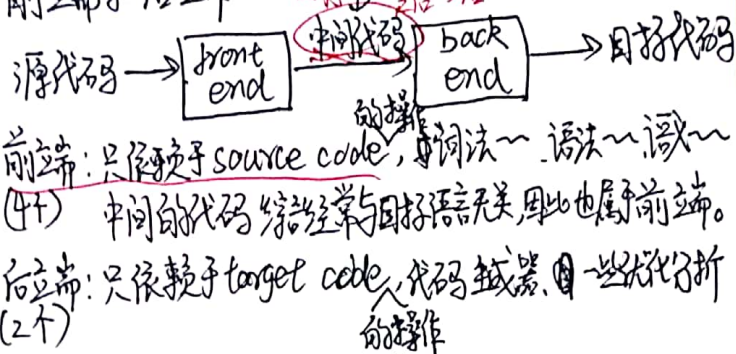 源代码 → front end 中间代码 → back end → 目标代码
前端：只依赖于source code的操作，词法~、语法~、语义~
(4个) 中间的代码经常与目标语言无关，因此也属于前端。
后端：只依赖于target code的操作，代码生成器、一些优化分析
(2个)